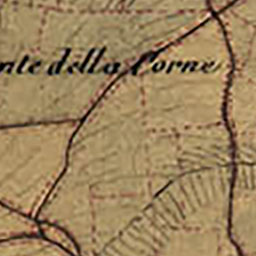 nte della Corne